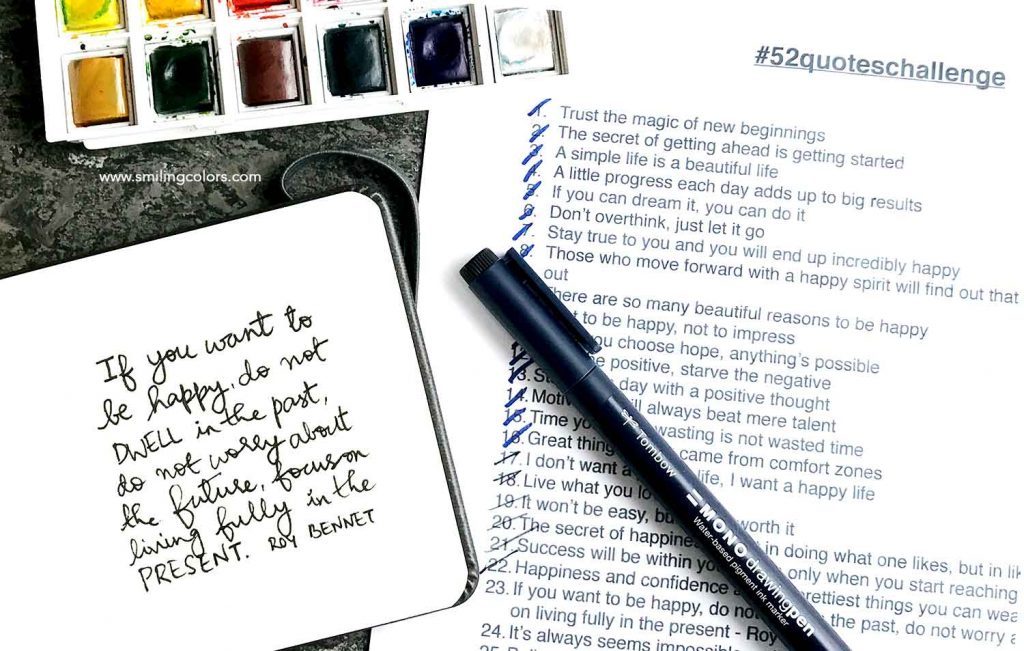 #52quoteschallenge
1. Trust the magic of new beginnings
2. The secret of getting ahead is getting started
3. A simple life is a beautiful life
4. A little progress each day adds up to big results
5. If you can dream it, you can do it
6. Don't overthink, just let it go
7. Stay true to you and you will end up incredibly happy
8. Those who move forward with a happy spirit will find out that
out
There are so many beautiful reasons to be happy
to be happy, not to impress
you choose hope, anything's possible
positive, starve the negative
13. day with a positive thought
14. will always beat mere talent
15. Time wasting is not wasted time
16. Great came from comfort zones
17. I don't want a life, I want a happy life
18. Live what you
19. It won't be easy, worth it
20. The secret of in doing what one likes, but in
21. Success will be within only when you start reaching
22. Happiness and confidence prettiest things you can
23. If you want to be happy, do the past, do not worry
on living fully in the present - Roy
24. It's always seems
www.smilingcolors.com
If you want to
be happy, do not
DWELL in the past,
do not worry about
the future, focus on
living fully in the
PRESENT. ROY BENNET
Tombow
MONO drawing pen
Water-based pigment ink marker